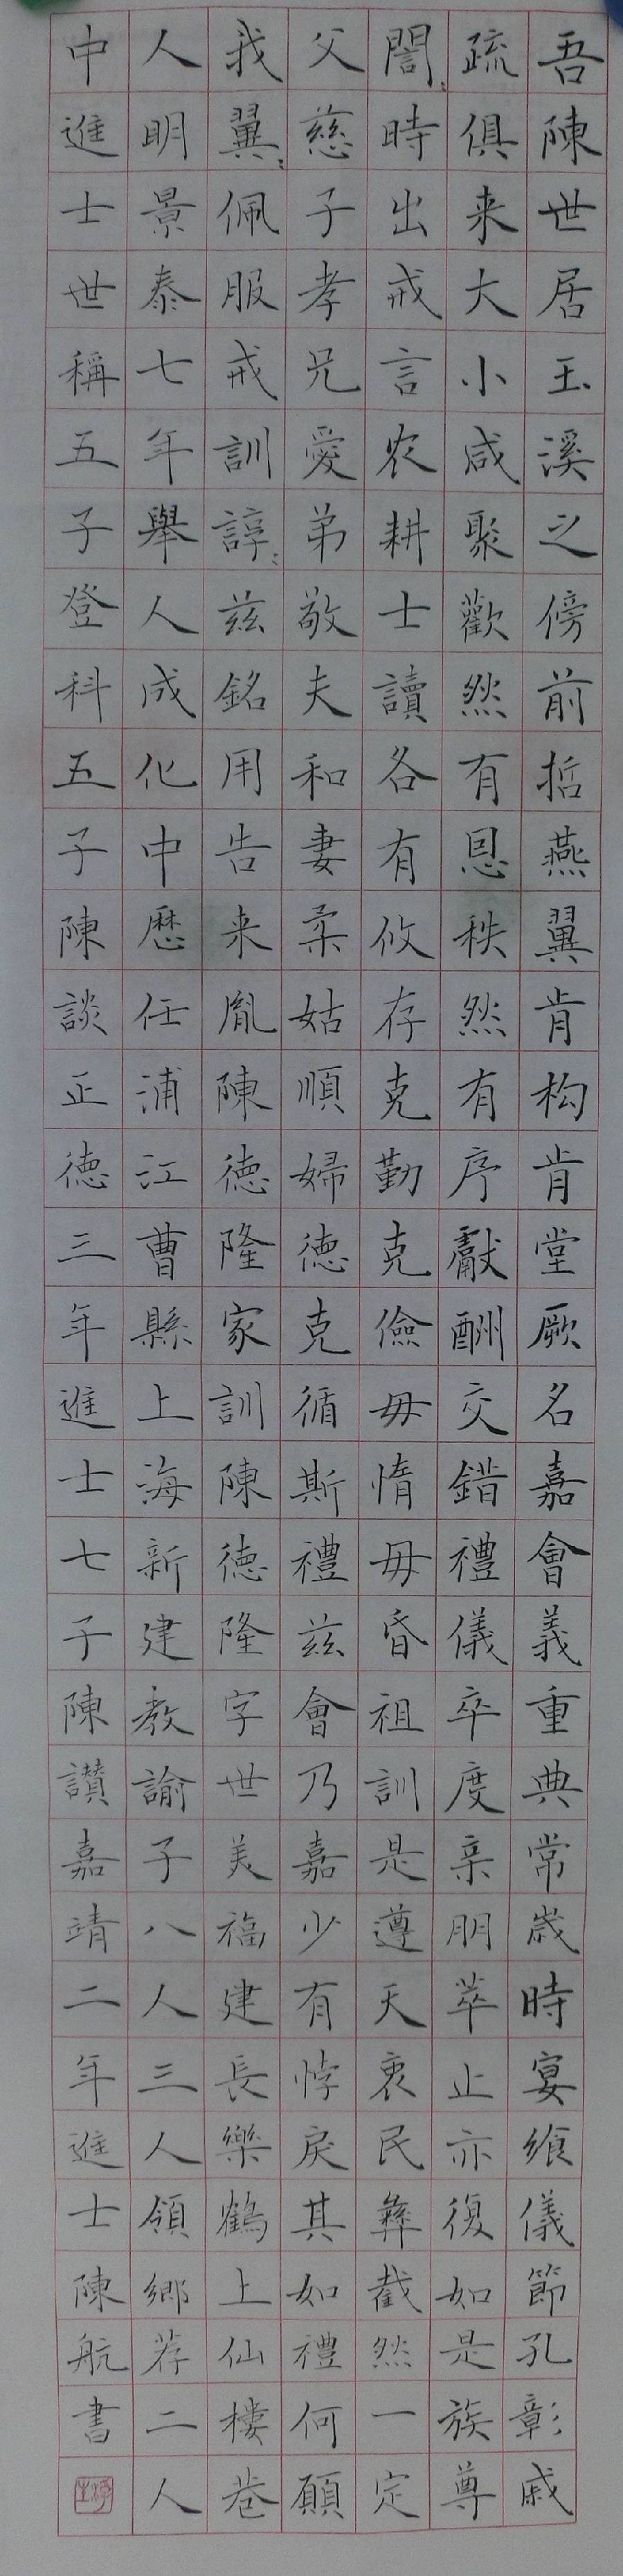 吾陳世居玉溪之傍前哲燕翼肯构肯堂厥名嘉會義重典常歲時宴飨儀節孔彰戚
疏俱来大小咸聚歡然有恩秩然有序獻酬交錯禮儀卒度亲朋萃止亦復如是族尊
誾々時出戒言农耕士讀各有攸存克勤克儉毋惰毋昏祖訓是遵天衷民彝截然一定
父慈子孝兄愛弟敬夫和妻柔姑順婦德克循斯禮兹會乃嘉少有悖戾其如禮何願
我翼々佩服戒訓諄々兹銘用告来胤陳德隆家訓陳德隆字世美福建長樂鶴上仙樓巷
人明景泰七年舉人成化中歷任浦江曹縣上海新建教諭子八人三人領鄉荐二人
中進士世稱五子登科五子陳談正德三年進士七子陳讃嘉靖二年進士陳航書